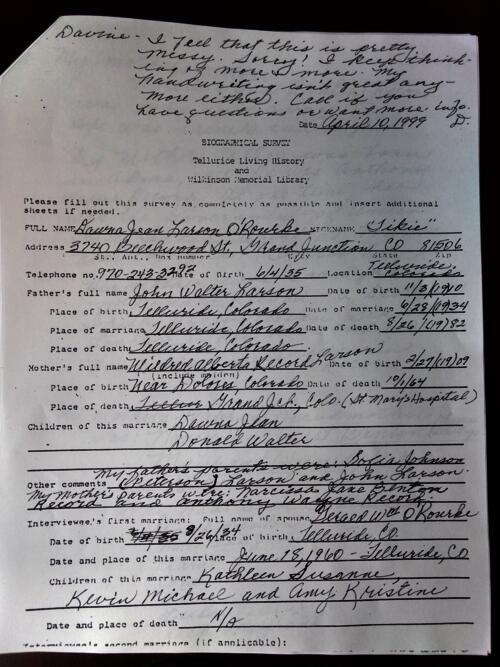 Davine - I feel that this is pretty
messy. Sorry! I keep think-
ing of more & more. My
handwriting isn't great any-
more either. Call if you
have questions or want more info.
Date April 10, 1999 D.
BIOGRAPHICAL SURVEY
Telluride Living History
and
Wilkinson Memorial Library
Please fill out this survey as completely as possible and insert additional
sheets if needed.
FULL NAME Dawna Jean Larson O'Rourke NICKNAME "Tikie"
Address 3240 Beechwood St, Grand Junction CO 81506
St., Apt., Box number City State Zip
Telephone no. 970-243-2292 Date of Birth 6/4/35 Location Telluride, Colorado
Father's full name John Walter Larson Date of birth 11/3/(19)10
Place of birth Telluride, Colorado Date of marriage 6/28/(19)34
Place of marriage Telluride, Colorado Date of death 8/26/(19)82
Place of death Telluride, Colorado
Mother's full name Mildred Alberta Record Larson Date of birth 2/27/(19)09
(include maiden)
Place of birth Near Dolores Colorado Date of death 10/1/64
Place of death Grand Jct., Colo. (St. Mary's Hospital)
Children of this marriage Dawna Jean
Donald Walter
My father's parents were: Sofia Johnson
Other comments (Peterson) Larson and John Larson.
My Mother's parents were: Narcissa Jane
Record and Anthony Wayne Record
Interviewee's first marriage: Full name of spouse Gerald Wm O'Rourke
Date of birth 8/26/34 Place of birth Telluride, CO
Date and place of this marriage June 18, 1960 - Telluride, CO
Children of this marriage Kathleen Susanne,
Kevin Michael and Amy Kristine
Date and place of death N/A
Interviewee's second marriage (if applicable):